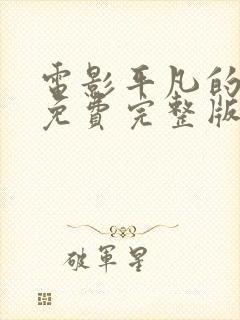 電影平凡的
免費完整版
破軍星